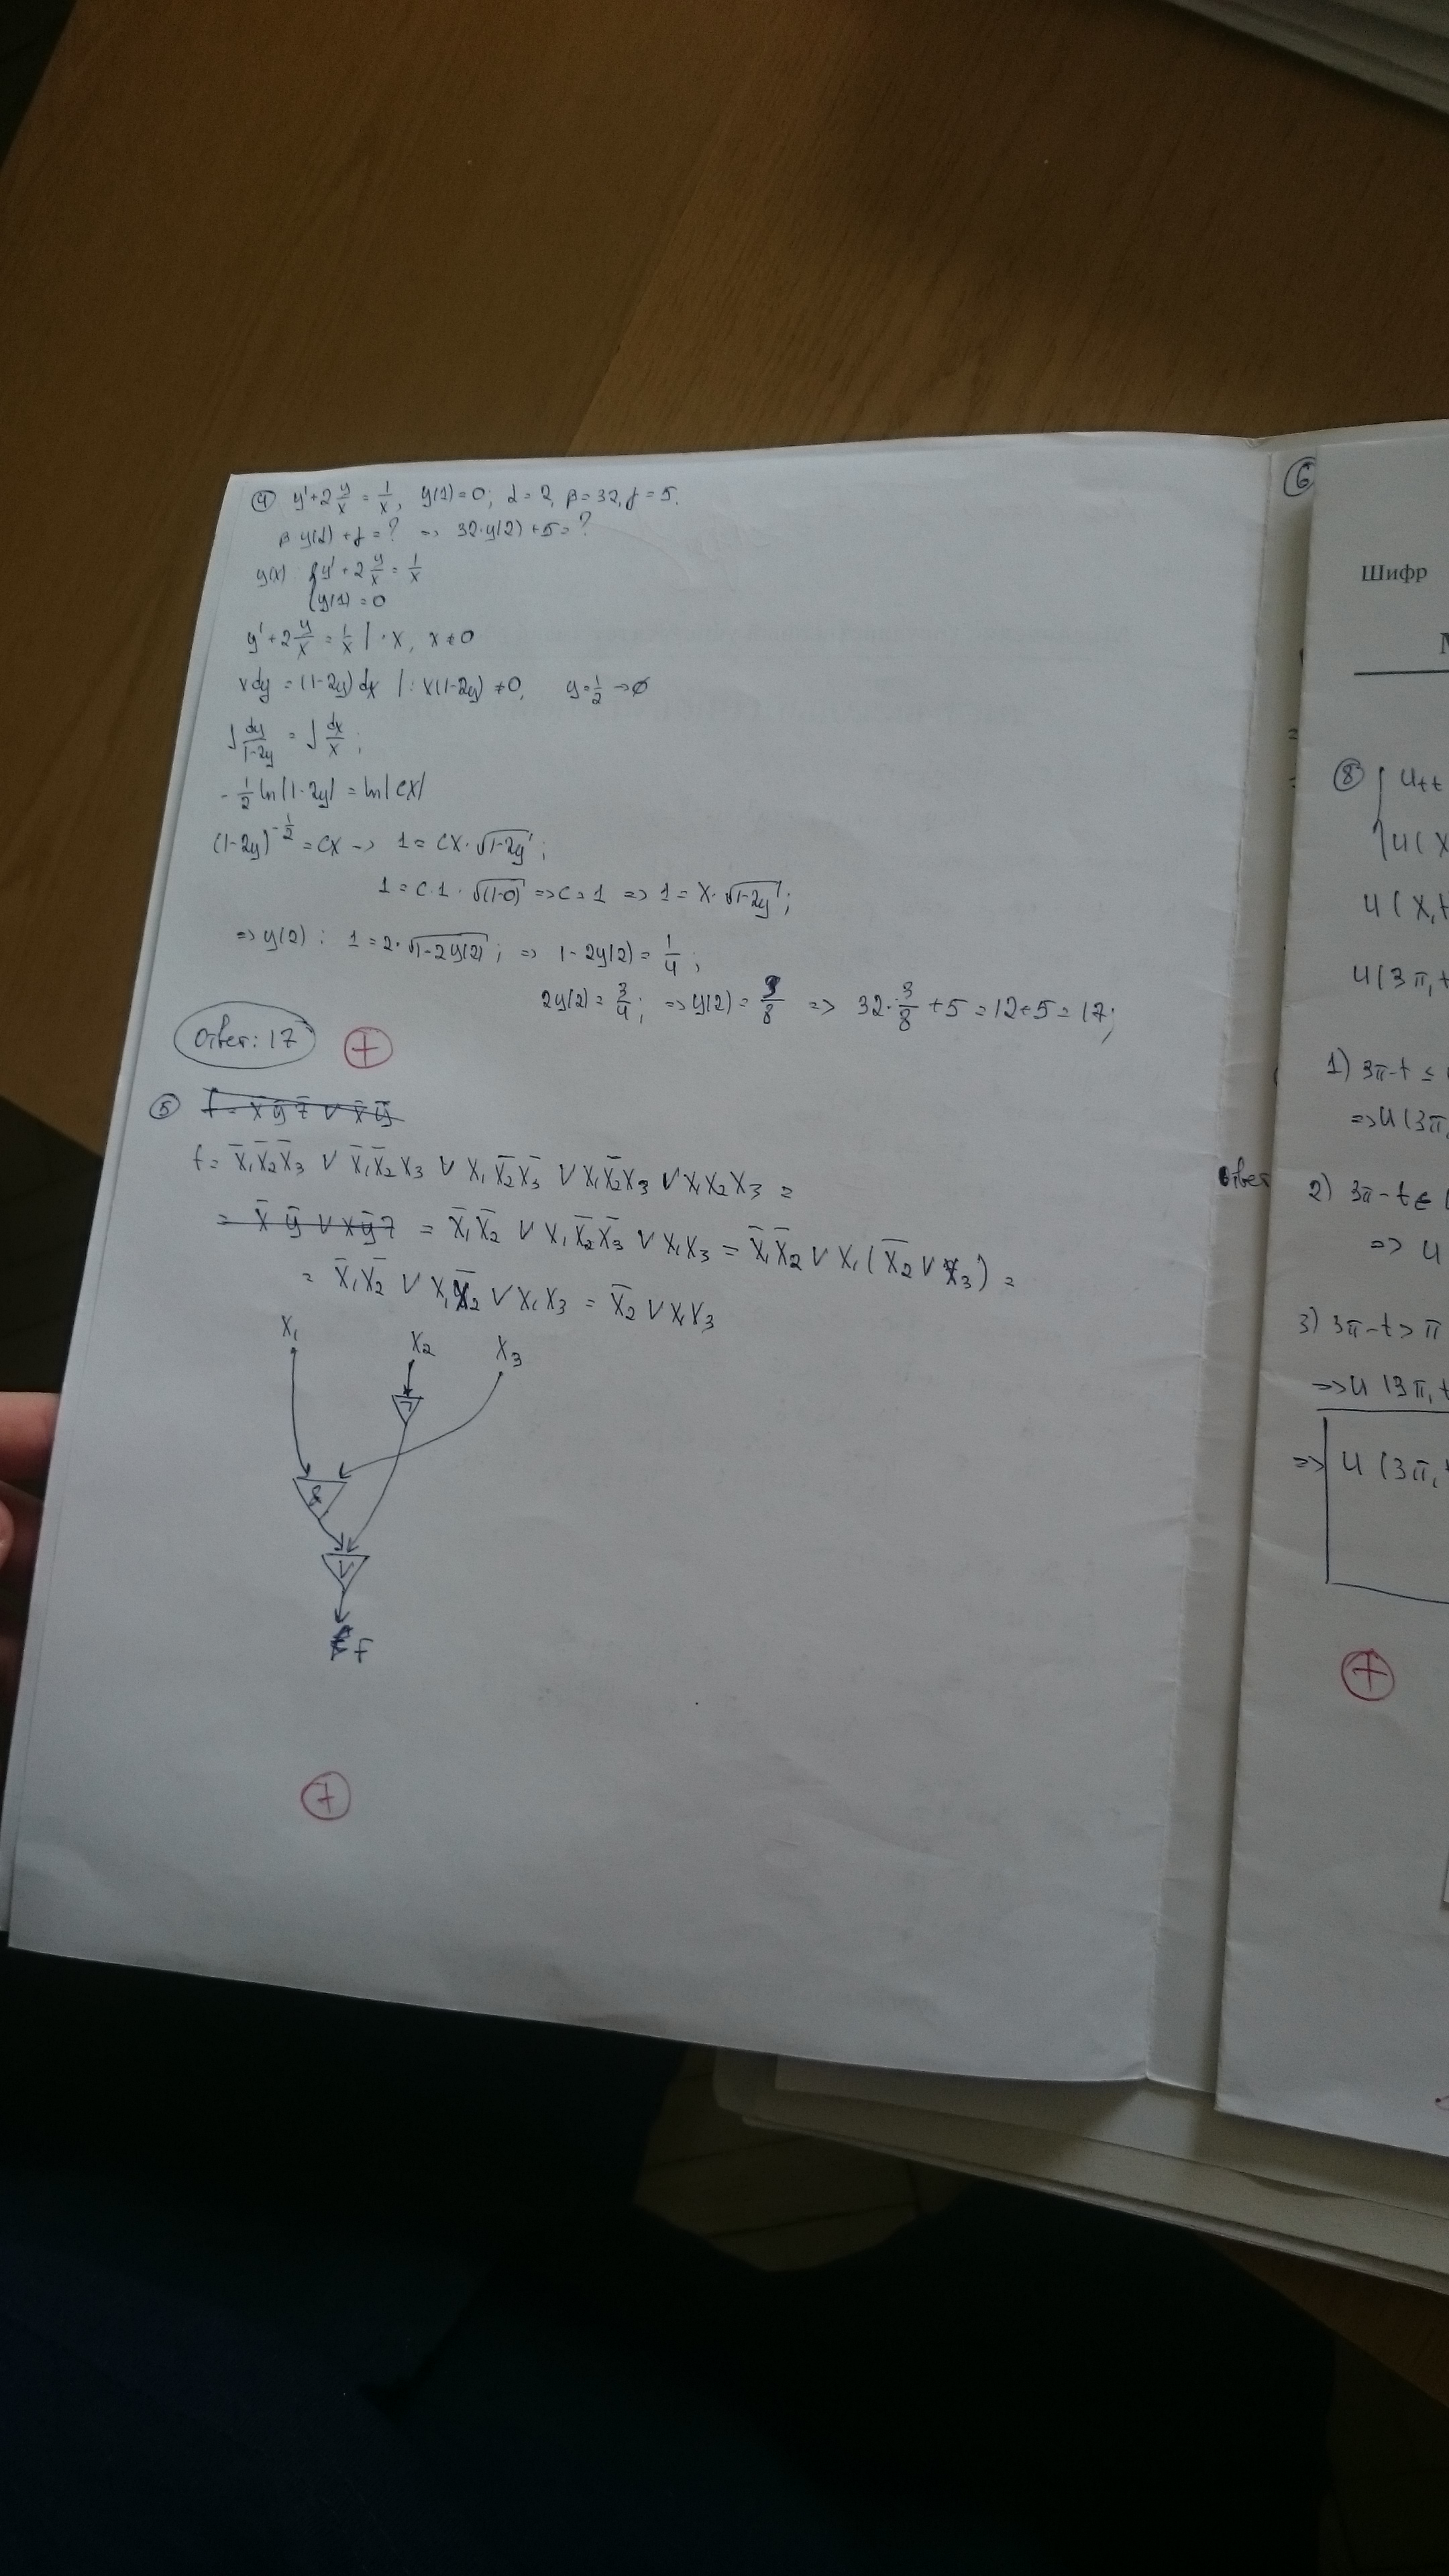 ④ y' + 2 y/x = 1/x, y(1) = 0; α = 2, β = 32, γ = 5.
β y(α) + γ = ? => 32·y(2) + 5 = ?
y(x): { y' + 2 y/x = 1/x
{ y(1) = 0
y' + 2 y/x = 1/x | · x, x ≠ 0
x dy = (1-2y) dx | : x(1-2y) ≠ 0, y = 1/2 → ∅
∫ dy/(1-2y) = ∫ dx/x ;
- 1/2 ln|1-2y| = ln|cx|
(1-2y)^(-1/2) = cx → 1 = cx·√(1-2y) ;
1 = c·1·√(1-0) => c = 1 => 1 = x·√(1-2y) ;
=> y(2) : 1 = 2·√(1-2y(2)) ; => 1-2y(2) = 1/4 ;
2y(2) = 3/4 ; => y(2) = 3/8 => 32·3/8 + 5 = 12+5 = 17;
Ответ: 17 +
⑤
f = x̄₁x̄₂x̄₃ ∨ x̄₁x̄₂x₃ ∨ x₁x̄₂x̄₃ ∨ x₁x̄₂x₃ ∨ x₁x₂x₃ =
= x̄ ȳ ∨ x ȳ z = x̄₁x̄₂ ∨ x₁x̄₂x̄₃ ∨ x₁x₃ = x̄₁x̄₂ ∨ x₁(x̄₂ ∨ x₃) =
= x̄₁x̄₂ ∨ x₁x̄₂ ∨ x₁x₃ = x̄₂ ∨ x₁x₃
x₁ x₂ x₃
¬
&
∨
f
+
⑥
=
Ответ
Шифр
⑧ { u_tt
u(x
u(x,t
u(3π,t
1) 3π-t ≤
=> u(3π,
2) 3π-t ∈
=> u
3) 3π-t > π
=> u(3π,t
=> u(3π,t
+